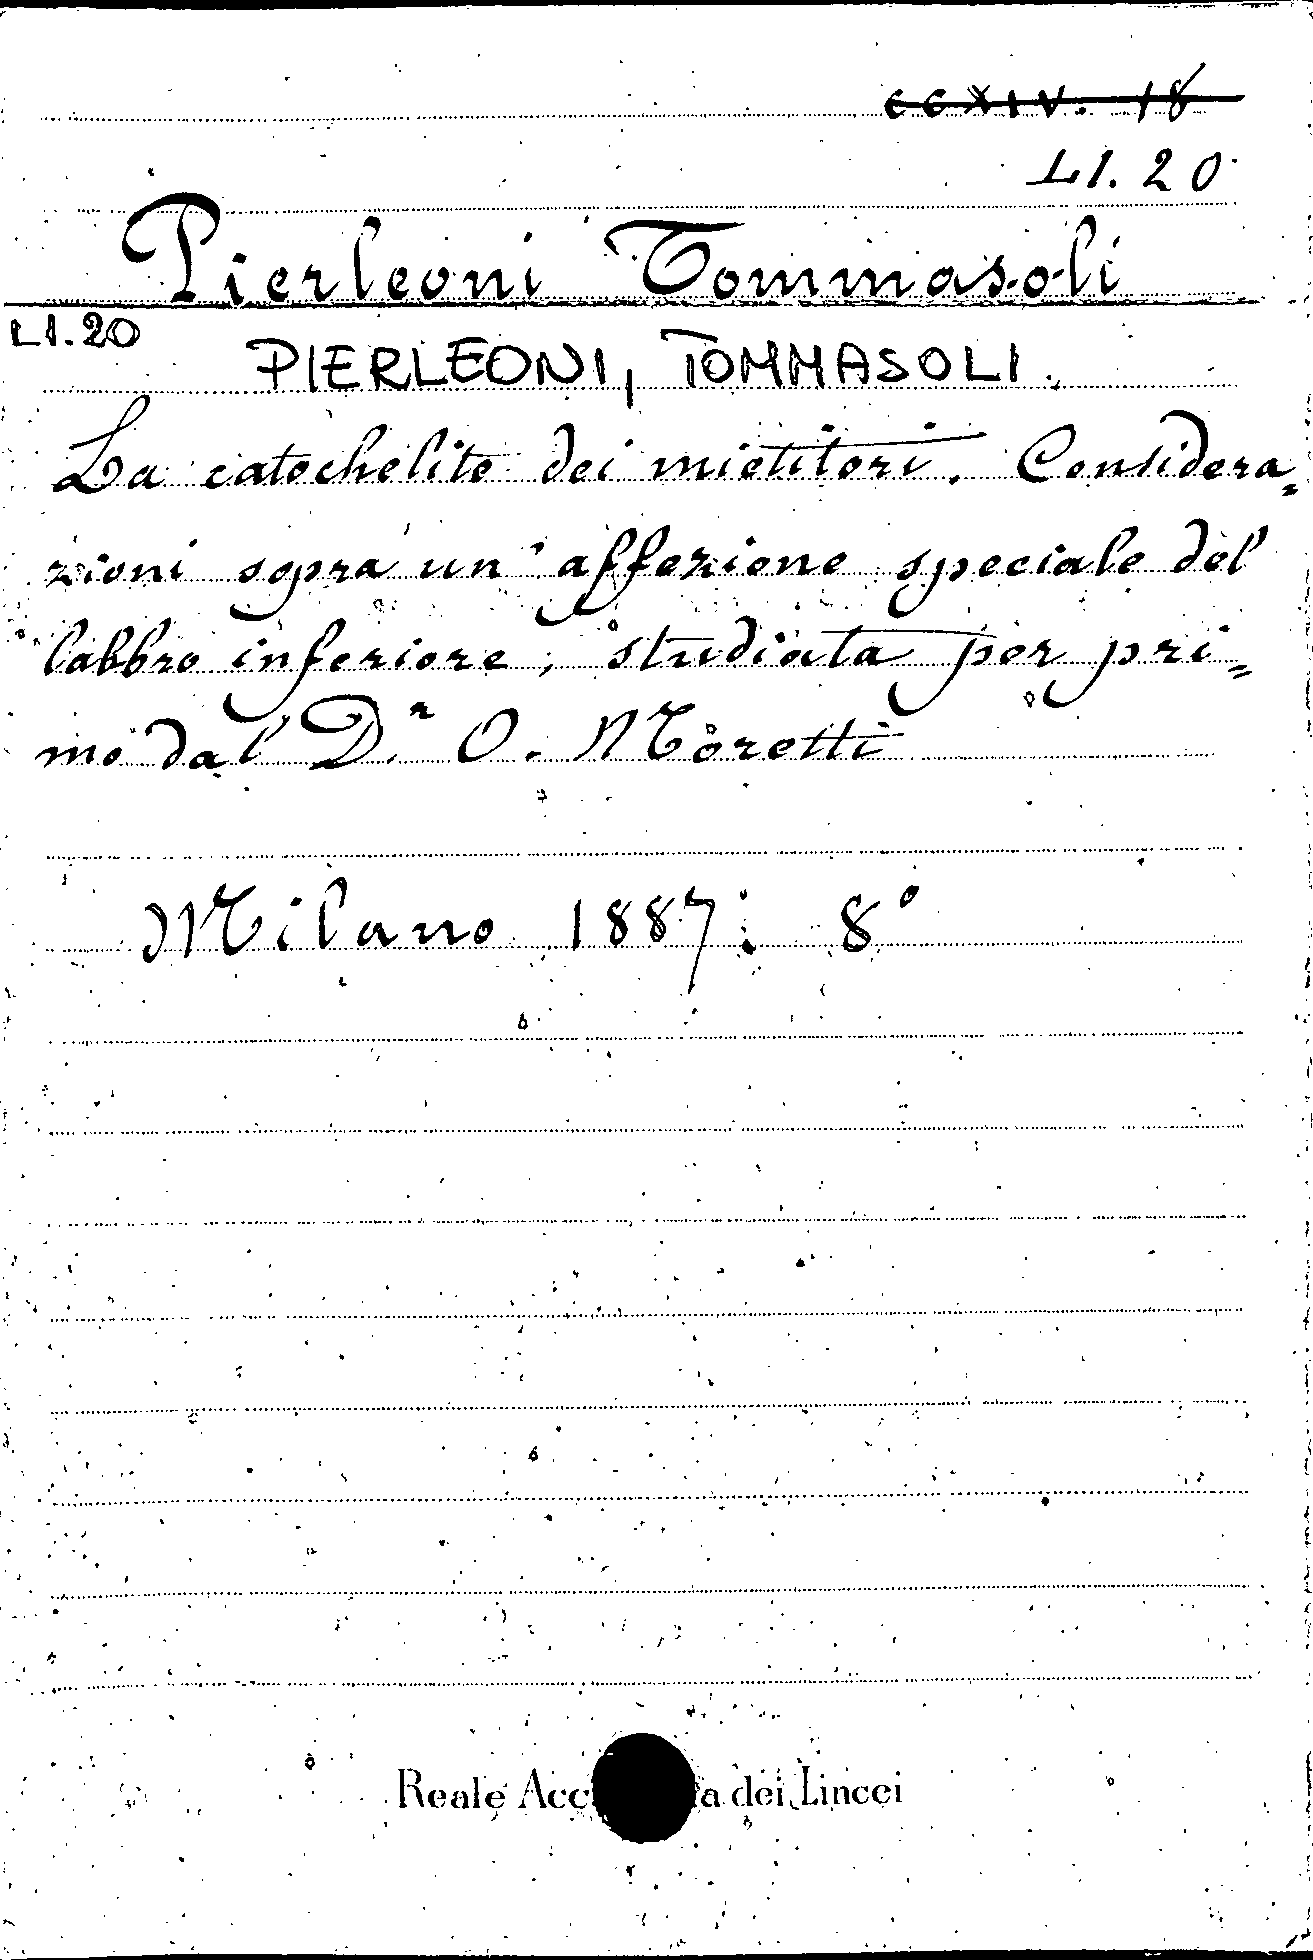 CCXIV. 18
LI. 20
Pierleoni Tommasoli
LI.20
PIERLEONI, TOMMASOLI.
La catochelite dei mietitori. Considera=
zioni sopra un' affezione speciale del
labbro inferiore, studiata per pri=
mo dal D.r O. Moretti
Milano 1887; 8°
Reale Acc a dei Lincei